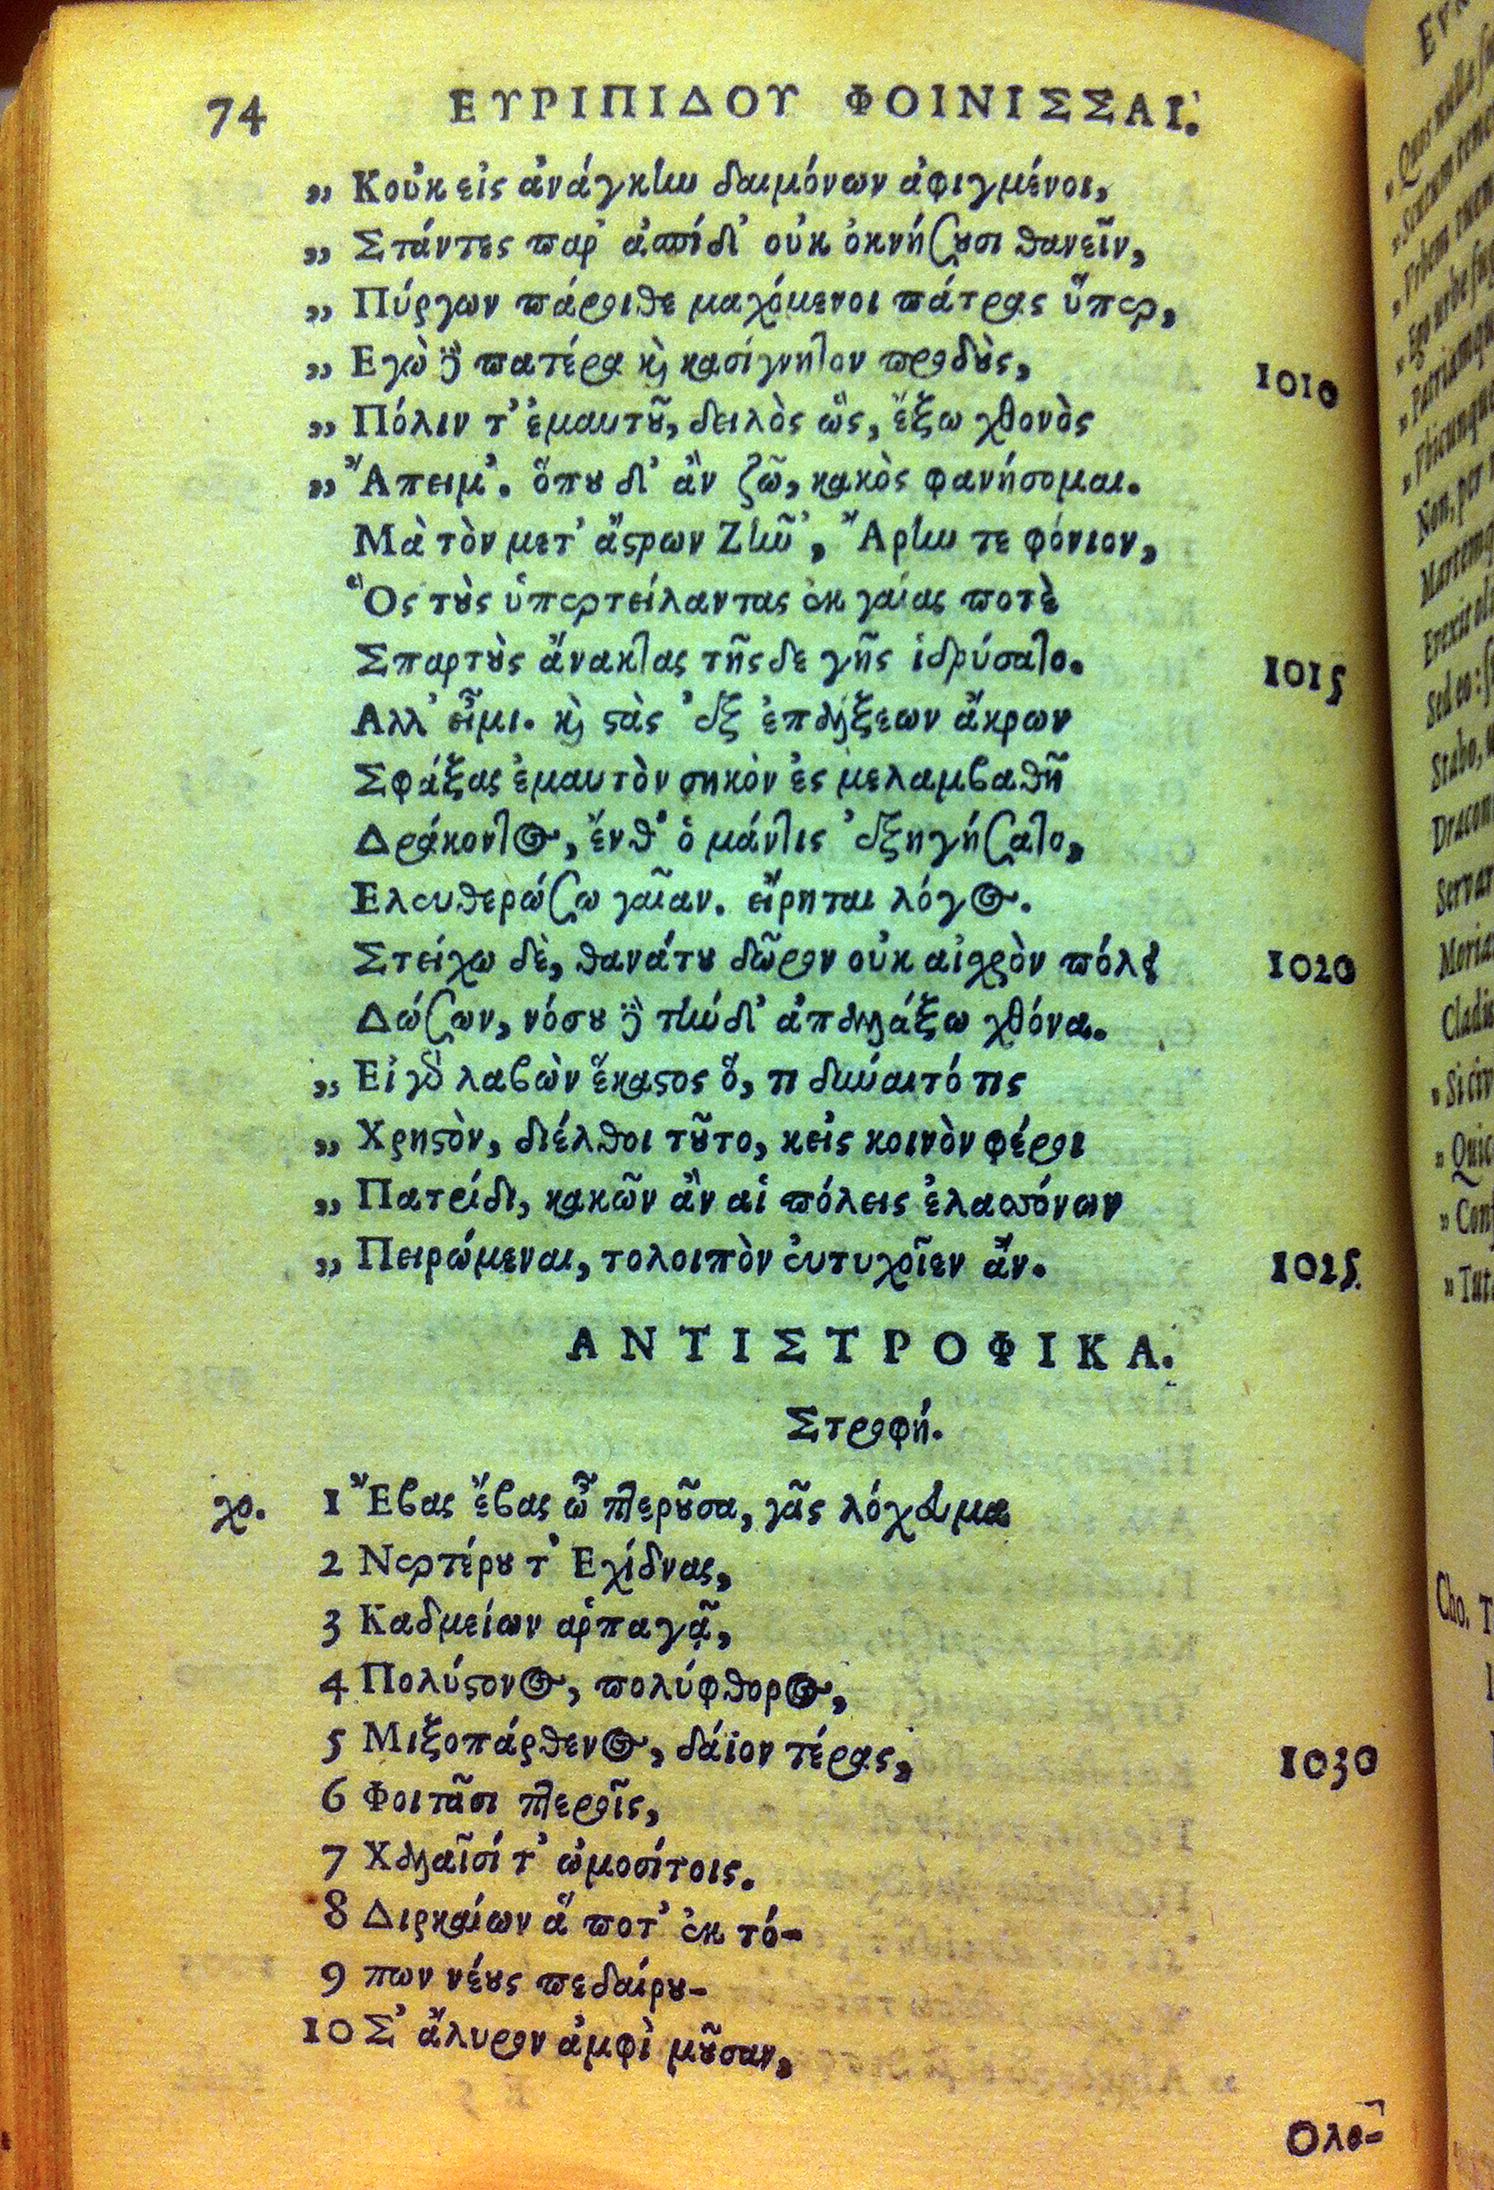 74 ΕΥΡΙΠΙΔΟΥ ΦΟΙΝΙΣΣΑΙ.
„ Κοὐκ εἰς ἀνάγκην δαιμόνων ἀφιγμένοι,
„ Στάντες παρ' ἀσπίδ' οὐκ ὀκνήσουσι θανεῖν,
„ Πύργων πάροιθε μαχόμενοι πάτρας ὕπερ,
„ Εγὼ δὲ πατέρα καὶ κασίγνητον προδοὺς, 1010
„ Πόλιν τ' ἐμαυτοῦ, δειλὸς ὣς, ἔξω χθονὸς
„ Ἄπειμ'. ὅπου δ' ἂν ζῶ, κακὸς φανήσομαι.
Μὰ τὸν μετ' ἄστρων Ζῆν', Ἄρην τε φόνιον,
Ὃς τοὺς ὑπερτείλαντας ἐκ γαίας ποτὲ
Σπαρτοὺς ἄνακτας τῆσδε γῆς ἱδρύσατο. 1015
Αλλ' εἶμι. καὶ στὰς ἐξ ἐπάλξεων ἄκρων
Σφάξας ἐμαυτὸν σηκὸν ἐς μελαμβαθῆ
Δράκοντος, ἔνθ' ὁ μάντις ἐξηγήσατο,
Ελευθερώσω γαῖαν. εἴρηται λόγος.
Στείχω δὲ, θανάτου δῶρον οὐκ αἰσχρὸν πόλει 1020
Δώσων, νόσου δὲ τήνδ' ἀπαλλάξω χθόνα.
„ Εἰ γὰρ λαβὼν ἕκαστος ὅ, τι δύναιτό τις
„ Χρηστὸν, διέλθοι τοῦτο, κεἰς κοινὸν φέροι
„ Πατρίδι, κακῶν ἂν αἱ πόλεις ἐλασσόνων
„ Πειρώμεναι, τολοιπὸν εὐτυχοῖεν ἄν. 1025
ΑΝΤΙΣΤΡΟΦΙΚΑ.
Στροφή.
χο. 1 Ἔβας ἔβας ὦ πτεροῦσα, γᾶς λόχευμα
2 Νερτέρου τ' Εχίδνας,
3 Καδμείων ἁρπαγᾷ,
4 Πολύστονος, πολύφθορος,
5 Μιξοπάρθενος, δάϊον τέρας, 1030
6 Φοιτᾶσι πτεροῖς,
7 Χαλαῖσί τ' ὠμοσίτοις.
8 Διρκαίων ἅ ποτ' ἐκ τό-
9 πων νέους πεδαίρου-
10 Σ' ἄλυρον ἀμφὶ μοῦσαν,
Ολο-